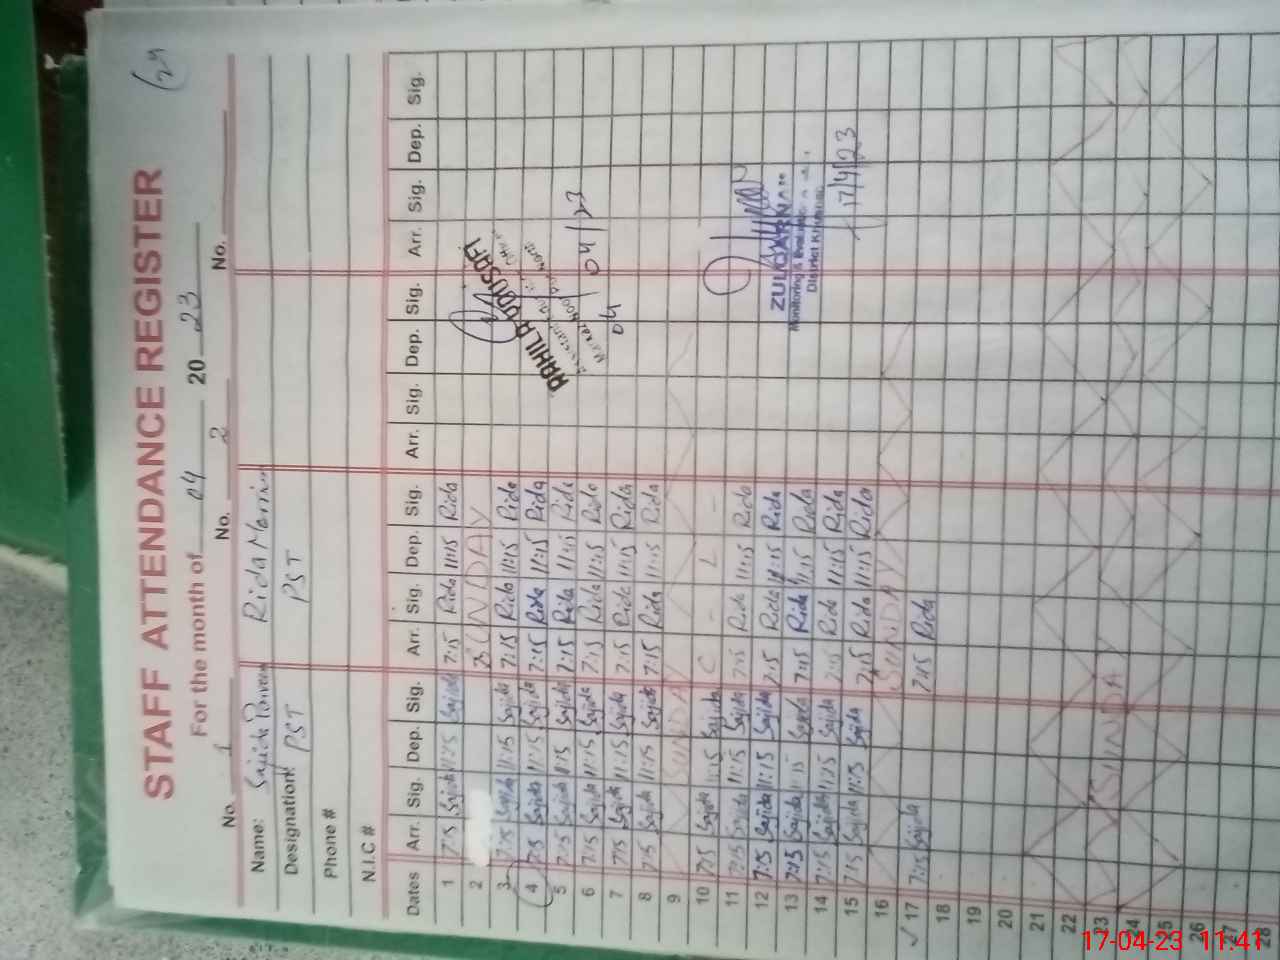 STAFF ATTENDANCE REGISTER
For the month of 04 2023
No. 1 No. 2 No.
Name: Sajida Parveen Rida Marrium
Designation: PST PST
Phone #
N.I.C #
Dates Arr. Sig. Dep. Sig. Arr. Sig. Dep. Sig. Arr. Sig. Dep. Sig. Arr. Sig. Dep. Sig.
1 7:15 Sajida 11:15 Sajida 7:15 Rida 11:15 Rida
2 SUNDAY
3 7:15 Sajida 11:15 Sajida 7:15 Rida 11:15 Rida
4 7:15 Sajida 11:15 Sajida 7:15 Rida 11:15 Rida
5 7:15 Sajida 11:15 Sajida 7:15 Rida 11:15 Rida
6 7:15 Sajida 11:15 Sajida 7:15 Rida 11:15 Rida
7 7:15 Sajida 11:15 Sajida 7:15 Rida 11:15 Rida
8 7:15 Sajida 11:15 Sajida 7:15 Rida 11:15 Rida
9 SUNDAY
10 7:15 Sajida 11:15 Sajida C - L -
11 7:15 Sajida 11:15 Sajida 7:15 Rida 11:15 Rida
12 7:15 Sajida 11:15 Sajida 7:15 Rida 11:15 Rida
13 7:15 Sajida 11:15 Sajida 7:15 Rida 11:15 Rida
14 7:15 Sajida 11:15 Sajida 7:15 Rida 11:15 Rida
15 7:15 Sajida 11:15 Sajida 7:15 Rida 11:15 Rida
16 SUNDAY
17 7:15 Sajida 7:15 Rida
18
19
20
21
22
23 SUNDA
24
25
26
27
28
RAHILA
04/04/23
ZULQARNAIN
Monitoring &
District
17/4/23
17-04-23 11:41